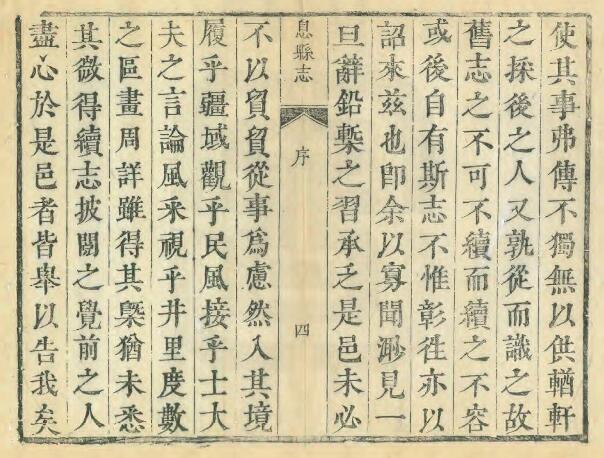 使其事弗傳不獨無以供輶軒
之採後之人又孰從而識之故
舊志之不可不續而續之不容
或後自有斯志不惟彰徃亦以
詔來兹也卽余以寡聞渺見一
旦辭鉛槧之習承乏是邑未必
息縣志 序 四
不以貿貿從事爲慮然入其境
履乎疆域觀乎民風接乎士大
夫之言論風采視乎井里度數
之區畫周詳雖得其槩猶未悉
其微得續志披閱之覺前之人
盡心於是邑者皆舉以告我矣